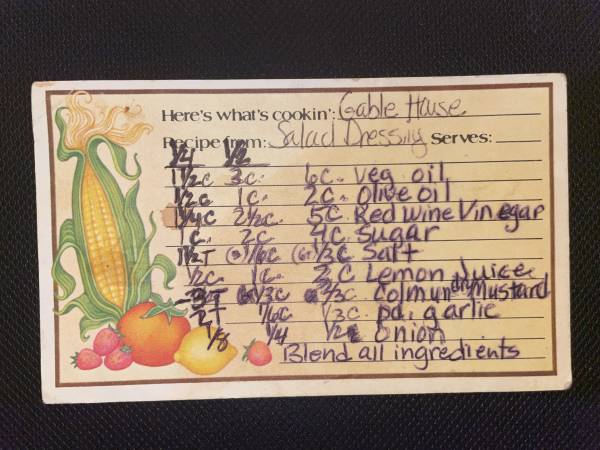 Here's what's cookin': Gable House
Recipe from: Salad Dressing Serves:
1/4 1/2
1 1/2 C 3 C. 6 C. Veg oil
1/2 C 1 C. 2 C. Olive oil
1/4 C 2 1/2 C. 5 C. Red wine Vinegar
1 C. 2 C 4 C. Sugar
1 1/2 T 1/6 C 1/3 C Salt
1/2 C. 1 C. 2 C Lemon Juice
3 T 1/3 C 2/3 C. Colmun dry Mustard
2 T 1/6 C 1/3 C. pd. garlic
1/8 1/4 1/2 Onion
Blend all ingredients